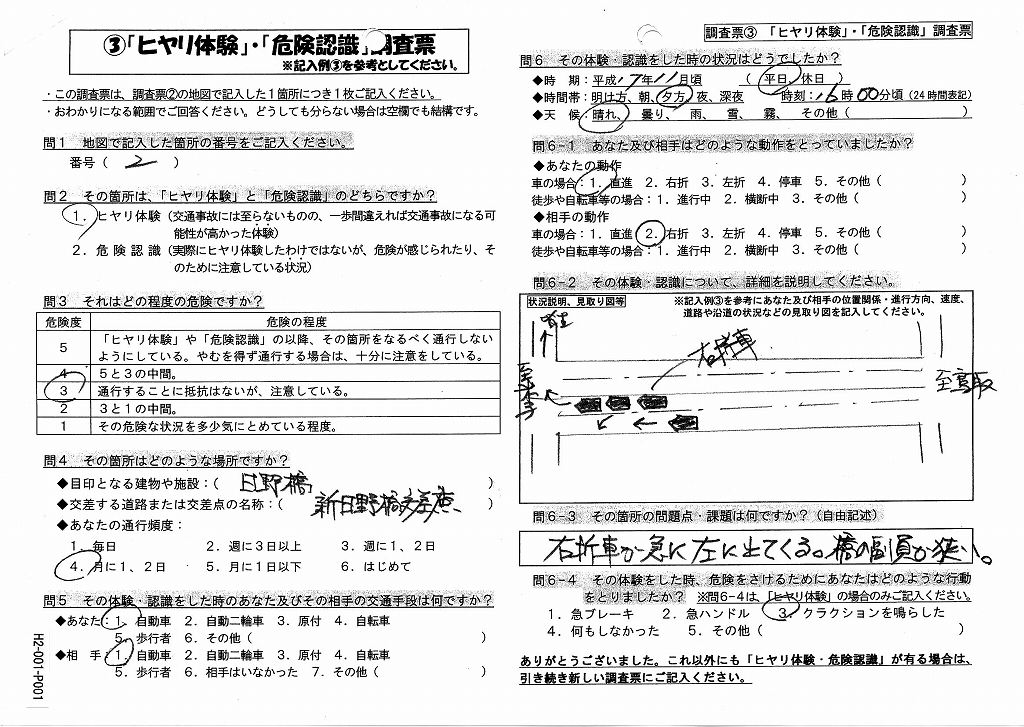 ③「ヒヤリ体験」・「危険認識」調査票
※記入例③を参考としてください。
・この調査票は、調査票②の地図で記入した１箇所につき１枚ご記入ください。
・おわかりになる範囲でご回答ください。どうしても分らない場合は空欄でも結構です。
問１ 地図で記入した箇所の番号をご記入ください。
番号（ 2 ）
問２ その箇所は、「ヒヤリ体験」と「危険認識」のどちらですか？
１．ヒヤリ体験（交通事故には至らないものの、一歩間違えれば交通事故になる可
能性が高かった体験）
２．危険認識（実際にヒヤリ体験したわけではないが、危険が感じられたり、そ
のために注意している状況）
問３ それはどの程度の危険ですか？
危険度 危険の程度
５ 「ヒヤリ体験」や「危険認識」の以降、その箇所をなるべく通行しない
ようにしている。やむを得ず通行する場合は、十分に注意をしている。
４ ５と３の中間。
３ 通行することに抵抗はないが、注意している。
２ ３と１の中間。
１ その危険な状況を多少気にとめている程度。
問４ その箇所はどのような場所ですか？
◆目印となる建物や施設：（ 日野橋 ）
◆交差する道路または交差点の名称：（ 新日野橋交差点 ）
◆あなたの通行頻度：
１．毎日 ２．週に３日以上 ３．週に１、２日
４．月に１、２日 ５．月に１日以下 ６．はじめて
問５ その体験・認識をした時のあなた及びその相手の交通手段は何ですか？
◆あなた：１．自動車 ２．自動二輪車 ３．原付 ４．自転車
５．歩行者 ６．その他（ ）
◆相 手：１．自動車 ２．自動二輪車 ３．原付 ４．自転車
５．歩行者 ６．相手はいなかった ７．その他（ ）
H2-001-P001
調査票③ 「ヒヤリ体験」・「危険認識」調査票
問６ その体験・認識をした時の状況はどうでしたか？
◆時 期：平成 17年 11月頃 （ 平日、休日 ）
◆時間帯：明け方、朝、夕方、夜、深夜 時刻：16時 00分頃（24時間表記）
◆天 候：晴れ、 曇り、 雨、 雪、 霧、 その他（ ）
問６-１ あなた及び相手はどのような動作をとっていましたか？
◆あなたの動作
車の場合：１．直進 ２．右折 ３．左折 ４．停車 ５．その他（ ）
徒歩や自転車等の場合：１．進行中 ２．横断中 ３．その他（ ）
◆相手の動作
車の場合：１．直進 ２．右折 ３．左折 ４．停車 ５．その他（ ）
徒歩や自転車等の場合：１．進行中 ２．横断中 ３．その他（ ）
問６-２ その体験・認識について、詳細を説明してください。
状況説明、見取り図等 ※記入例③を参考にあなた及び相手の位置関係・進行方向、速度、
道路や沿道の状況などの見取り図を記入してください。
右折車
至米子
至鳥取
問６-３ その箇所の問題点・課題は何ですか？（自由記述）
右折車が急に左に出てくる。橋の幅員が狭い。
問６-４ その体験をした時、危険をさけるためにあなたはどのような行動
をとりましたか？ ※問6-4は、「ヒヤリ体験」の場合のみご記入ください。
１．急ブレーキ ２．急ハンドル ３．クラクションを鳴らした
４．何もしなかった ５．その他（ ）
ありがとうございました。これ以外にも「ヒヤリ体験・危険認識」が有る場合は、
引き続き新しい調査票にご記入ください。